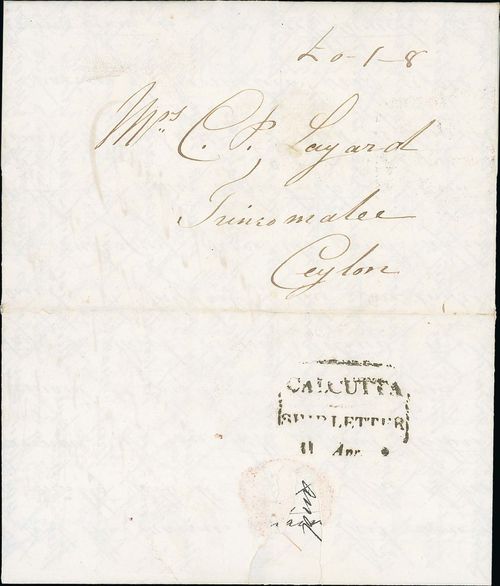 £0-1-8
Mrs C. P. Layard
Trincomalee
Ceylon
CALCUTTA
SHIP LETTER
11 Apr.